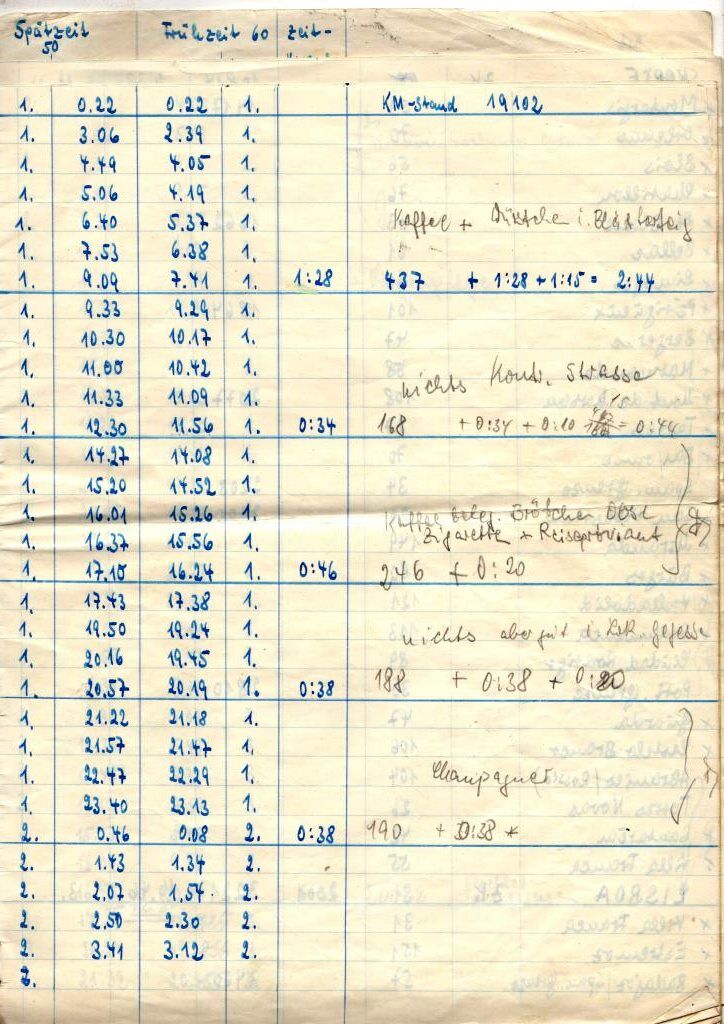 Spätzeit 50 Frühzeit 60 Zeit-
1. 0.22 0.22 1. KM-Stand 19102
1. 3.06 2.39 1.
1. 4.49 4.05 1.
1. 5.06 4.19 1.
1. 6.40 5.37 1. Kaffee + i. Blätterteig
1. 7.53 6.38 1.
1. 9.09 7.41 1. 1:28 437 + 1:28 + 1:15 = 2:44
1. 9.33 9.29 1.
1. 10.30 10.17 1.
1. 11.00 10.42 1.
nichts Kontr. Strasse
1. 11.33 11.09 1.
1. 12.30 11.56 1. 0:34 168 + 0:34 + 0:10 = 0:44
1. 14.27 14.08 1.
1. 15.20 14.52 1.
1. 16.01 15.26 1. Kaffee belegt. Brötchen Obst
1. 16.37 15.56 1. Zigarette + Reiseproviant
1. 17.10 16.24 1. 0:46 246 + 0:20
1. 17.43 17.38 1.
1. 19.50 19.24 1. nichts aber gut
1. 20.16 19.45 1.
1. 20.57 20.19 1. 0:38 188 + 0:38 + 0:20
1. 21.22 21.18 1.
1. 21.57 21.47 1.
1. 22.47 22.29 1. Champagner
1. 23.40 23.13 1.
2. 0.46 0.08 2. 0:38 190 + 0:38 *
2. 1.43 1.34 2.
2. 2.07 1.54 2.
2. 2.50 2.30 2.
2. 3.41 3.12 2.
2.